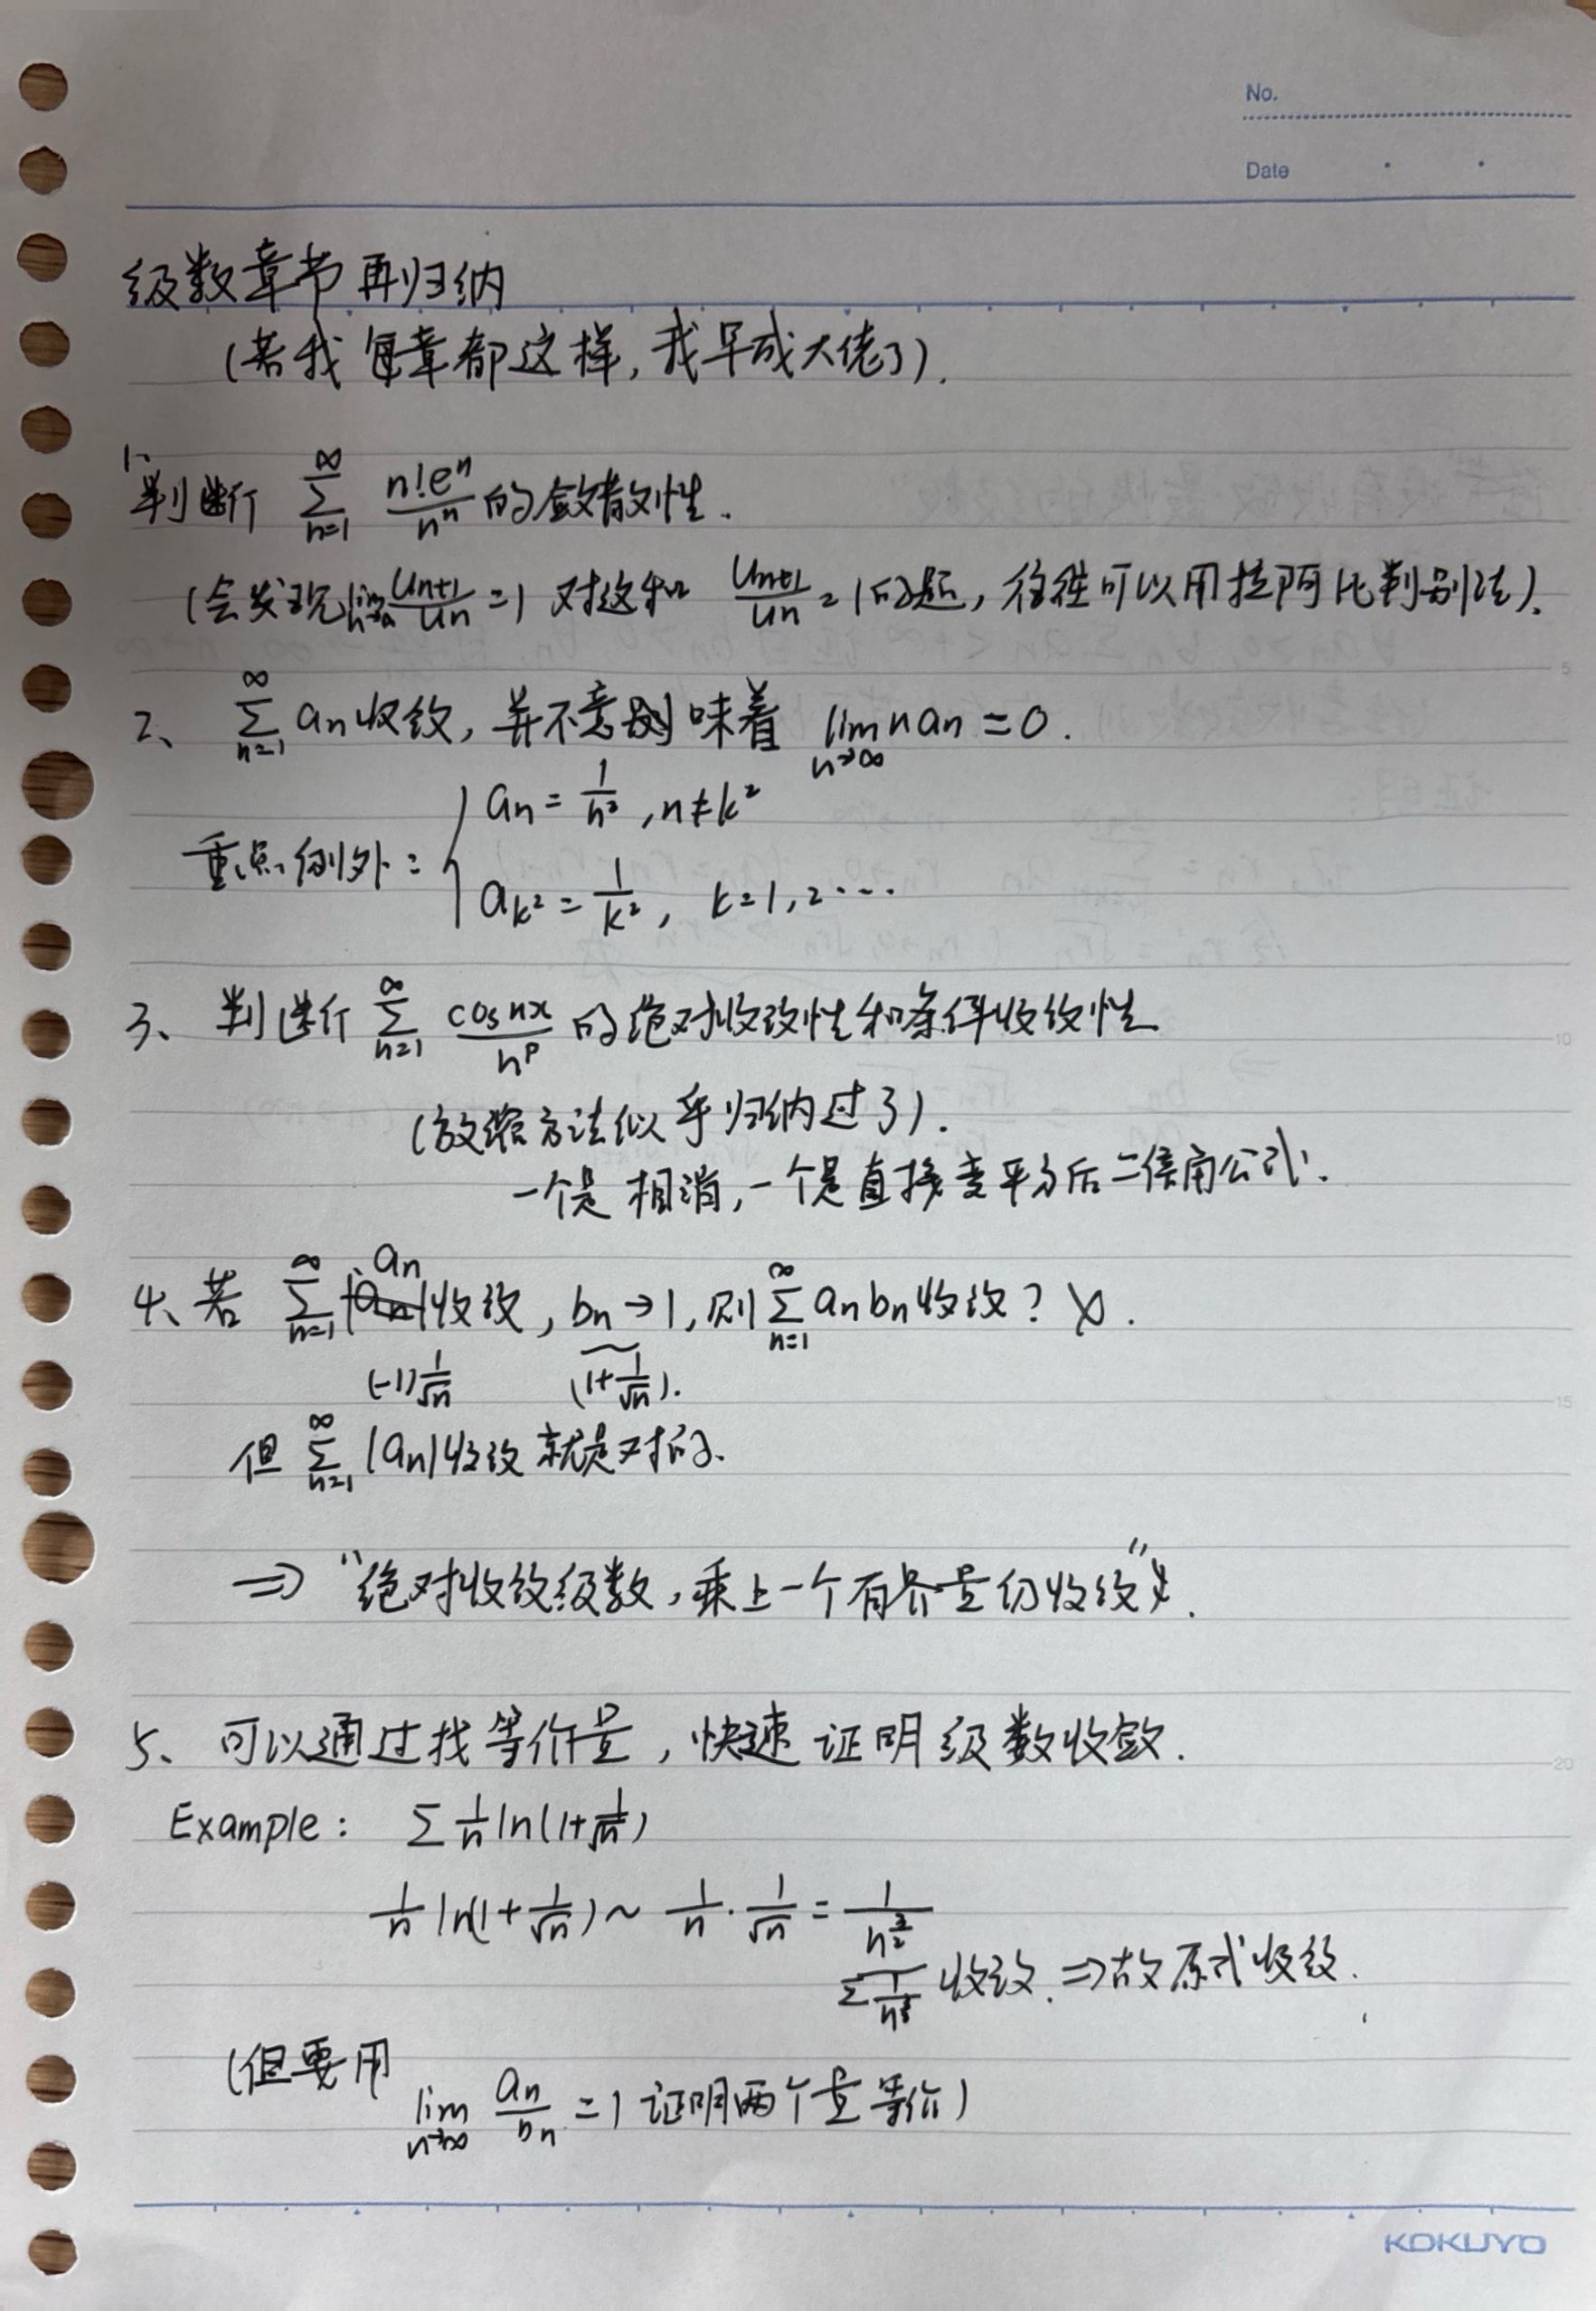 No.
Date
级数章节再归纳
(若我每章都这样,我早成大佬了).
1、
判断 ∑_{n=1}^{∞} n!eⁿ/nⁿ 的敛散性.
(会发现 lim_{n→∞} u_{n+1}/u_n =1 对这种 u_{n+1}/u_n =1的题,往往可以用拉阿比判别法).
2、 ∑_{n=1}^{∞} a_n收敛,并不意味着 lim_{n→∞} n a_n = 0.
重点例外: { a_n = 1/n², n≠k²
a_{k²} = 1/k², k=1,2⋯
3、判断 ∑_{n=1}^{∞} cos nx/n^p 的绝对收敛性和条件收敛性
(放缩方法似乎归纳过了).
一个是相消,一个是直接变平方后二倍角公式.
4、若 ∑_{n=1}^{∞} a_n 收敛, b_n→1,则 ∑_{n=1}^{∞} a_n b_n 收敛? ×.
(-1) 1/√n (1+1/√n).
但 ∑_{n=1}^{∞} |a_n|收敛就是对的.
⇒ "绝对收敛级数,乘上一个有界量仍收敛".
5、可以通过找等价量,快速证明级数收敛.
Example: ∑ 1/n ln(1+1/√n)
1/n ln(1+1/√n) ~ 1/n · 1/√n = 1/n^{3/2}
∑ 1/n^{3/2} 收敛. ⇒故原式收敛.
(但要用 lim_{n→∞} a_n/b_n =1 证明两个量等价)
KOKUYO
5
10
15
20